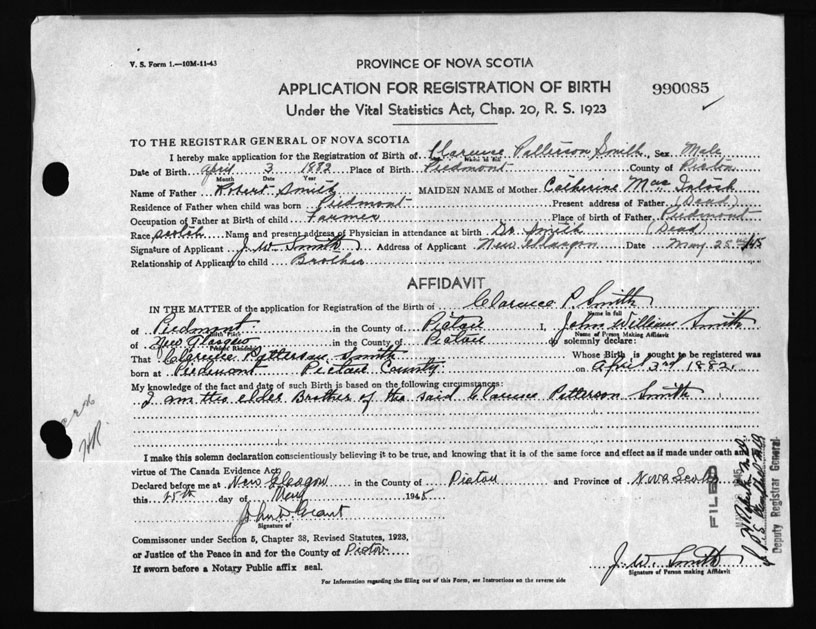 V. S. Form 1.—10M-11-43
PROVINCE OF NOVA SCOTIA
APPLICATION FOR REGISTRATION OF BIRTH
990085
Under the Vital Statistics Act, Chap. 20, R. S. 1923
TO THE REGISTRAR GENERAL OF NOVA SCOTIA
I hereby make application for the Registration of Birth of Clarence Patterson Smith, Sex Male
Name in full
Date of Birth April 3 1882 Place of Birth Piedmont County of Pictou
Month Date Year
Name of Father Robert Smith MAIDEN NAME of Mother Catherine Mac Intosh
Residence of Father when child was born Piedmont Present address of Father (Dead)
Occupation of Father at Birth of child Farmer Place of birth of Father Piedmont
Race Scotch Name and present address of Physician in attendance at birth Dr Smith (Dead)
Signature of Applicant J. W. Smith Address of Applicant New Glasgow Date May 25 1945
Relationship of Applicant to child Brother
AFFIDAVIT
IN THE MATTER of the application for Registration of the Birth of Clarence P. Smith
Name in full
of Piedmont in the County of Pictou I, John William Smith
Birth Place Name of Person Making Affidavit
of New Glasgow in the County of Pictou do solemnly declare:
That Clarence Patterson Smith Whose Birth is sought to be registered was
born at Piedmont Pictou County on April 3rd 1882.
My knowledge of the fact and date of such Birth is based on the following circumstances:
I am the elder Brother of the said Clarence Patterson Smith
I make this solemn declaration conscientiously believing it to be true, and knowing that it is of the same force and effect as if made under oath and
virtue of The Canada Evidence Act
Declared before me at New Glasgow in the County of Pictou and Province of Nova Scotia
this 25th day of May 1945
John D Grant
Signature of
Commissoner under Section 5, Chapter 38, Revised Statutes, 1923,
or Justice of the Peace in and for the County of Pictou
If sworn before a Notary Public affix seal.
J. W. Smith
Signature of Person making Affidavit
For Information regarding the filling out of this Form, see Instructions on the reverse side
FILED
Deputy Registrar General